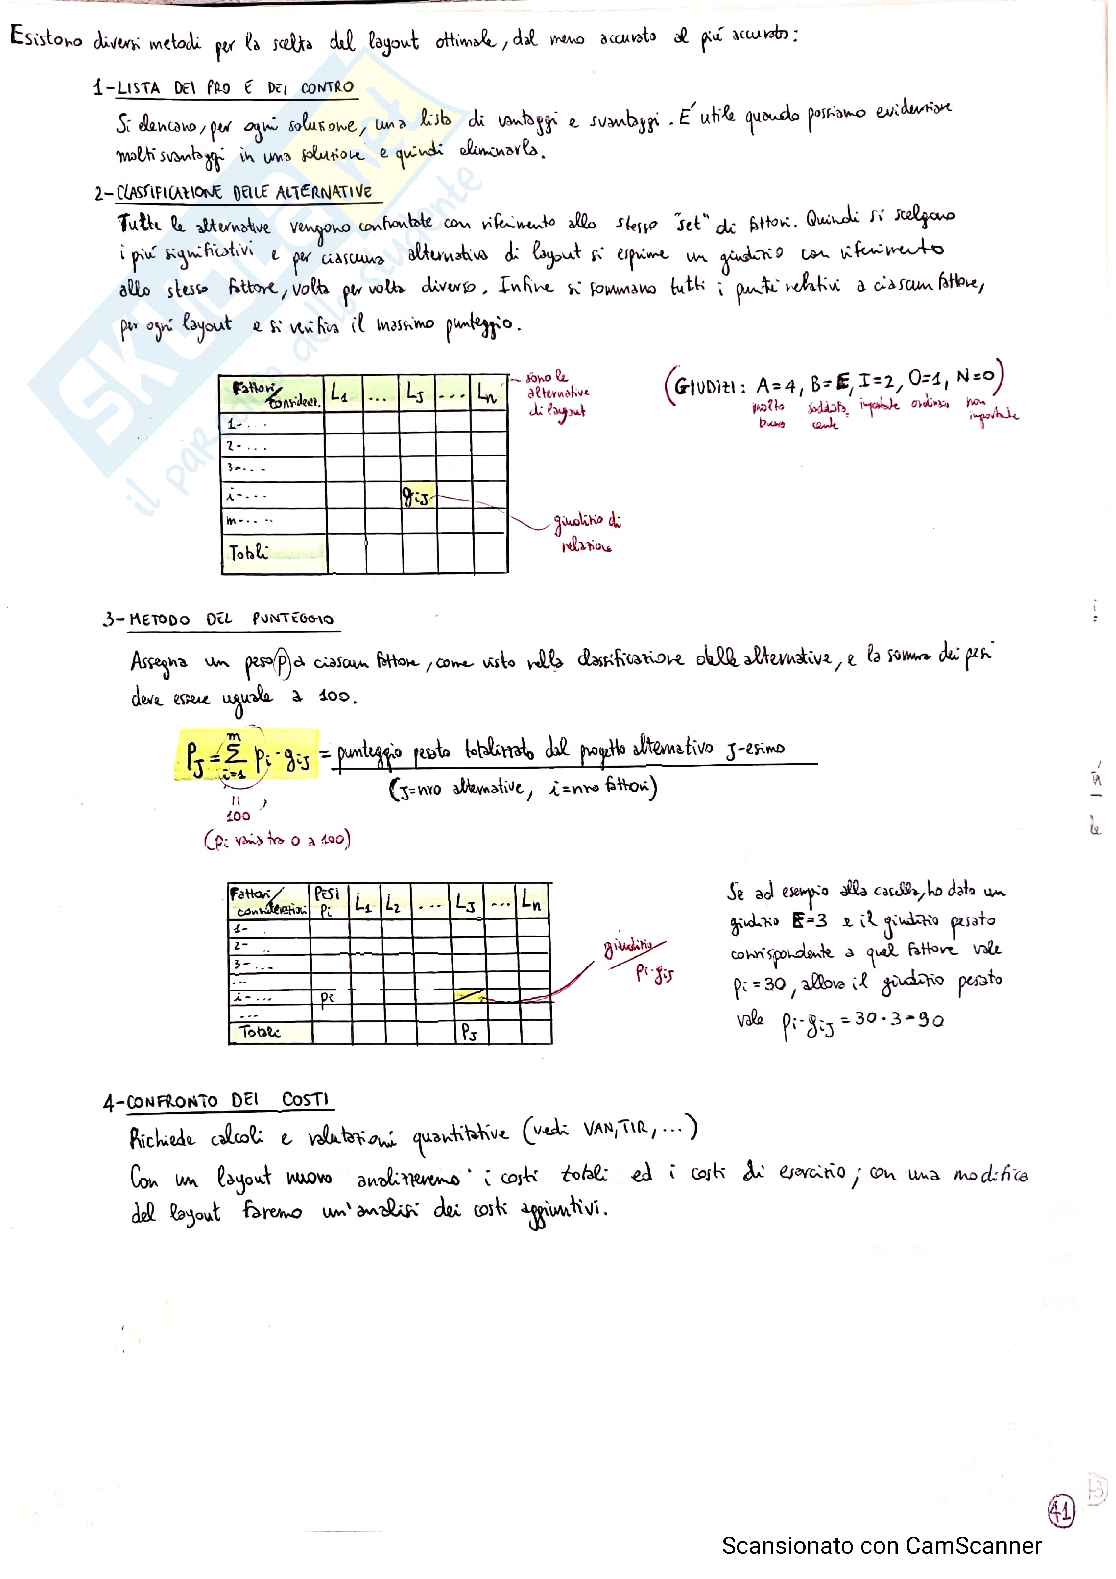 Esistono diversi metodi per la scelta del layout ottimale, dal meno accurato al più accurato:
1-LISTA DEI PRO E DEI CONTRO
Si elencano, per ogni soluzione, una lista di vantaggi e svantaggi. E' utile quando possiamo evidenziare
molti svantaggi in una soluzione e quindi eliminarla.
2-CLASSIFICAZIONE DELLE ALTERNATIVE
Tutte le alternative vengono confrontate con riferimento allo stesso "set" di fattori. Quindi si scelgono
i più significativi e per ciascuna alternativa di layout si esprime un giudizio con riferimento
allo stesso fattore, volta per volta diverso. Infine si sommano tutti i punti relativi a ciascun fattore,
per ogni layout e si verifica il massimo punteggio.
Fattori/ consider. L1 ... LJ ... Ln
1-...
2-...
3-...
i-... giJ
m-....
Totali
sono le
alternative
di layout
giudizio di
relazione
(GIUDIZI: A=4, B=E, I=2, O=1, N=0)
molto buono soddisfacente importante ordinario non importante
3-METODO DEL PUNTEGGIO
Assegna un peso (p) a ciascun fattore, come visto nella classificazione delle alternative, e la somma dei pesi
deve essere uguale a 100.
PJ = Σ m i=1 pi·giJ = punteggio pesato totalizzato dal progetto alternativo J-esimo
(J=nro alternative, i=nro fattori)
100
(pi varia tra 0 a 100)
Fattori/ considerazioni PESI Pi L1 L2 ... LJ ... Ln
1- .
2- ..
3-...
...
i-... pi
...
Totali PJ
giudizio
pi·giJ
Se ad esempio alla casella, ho dato un
giudizio E=3 e il giudizio pesato
corrispondente a quel fattore vale
pi=30, allora il giudizio pesato
vale pi·giJ=30·3=90
4-CONFRONTO DEI COSTI
Richiede calcoli e valutazioni quantitative (vedi VAN, TIR, ...)
Con un layout nuovo analizzeremo i costi totali ed i costi di esercizio; con una modifica
del layout faremo un'analisi dei costi aggiuntivi.
41
Scansionato con CamScanner